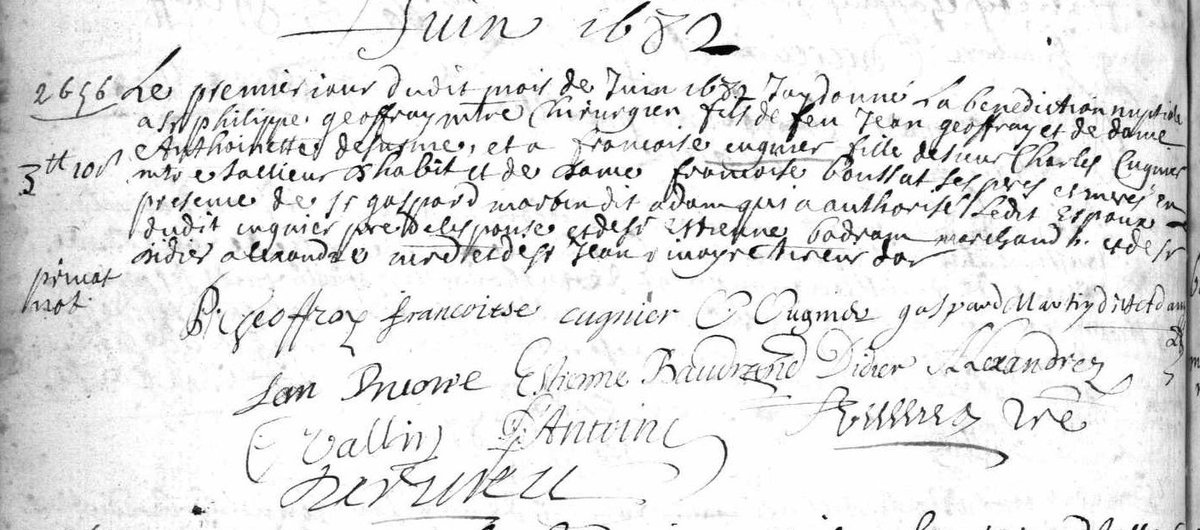 Juin 1682
2656 Le premier iour dudit mois de Juin 1682 Jay donné La benediction nuptiale
a sr philippe geoffray mtre Chirurgien fils de feu Jean geoffray et de dame
Anthoinette et a francoise cugnier fille de sieur Charles Cugnier
3tt 10s mtre tallieur d habit et de dame francoise boussat ses pere et mere en
presence de sr gaspard martin dit adam qui a authorisé Ledit Espoux
dudit cugnier pere de lespouse et de sr Estienne badram marchand et de sr
didier alexandre md et de sr Jean tireur dor
primat
not.
P. geoffray francoise cugnier C Cugnier gaspard Martin dit Adam
Jan Estienne Baudrand Didier Allexandre
Vallin Antoine vre